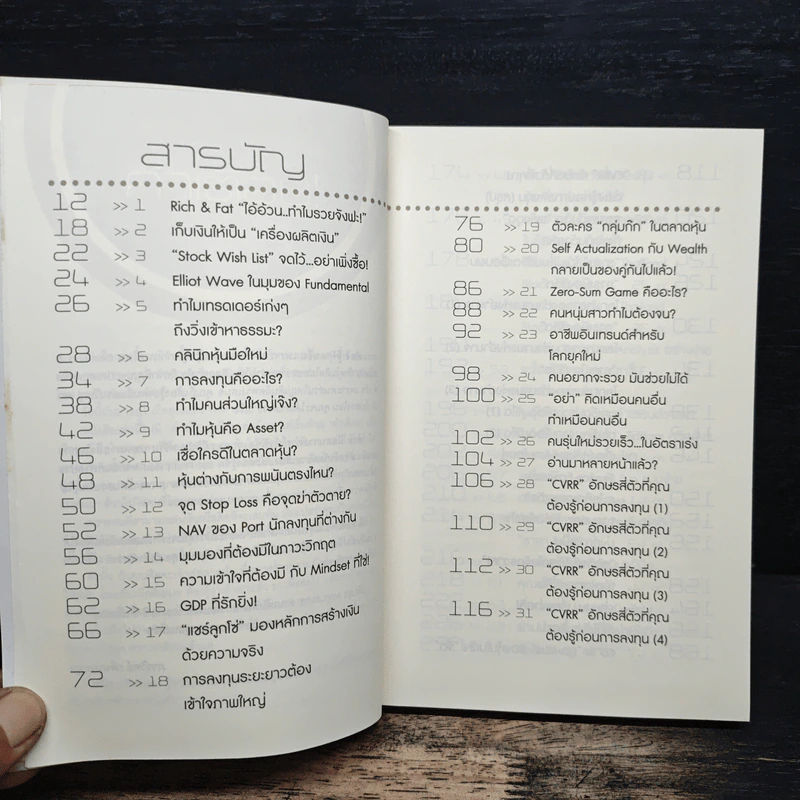 สารบัญ
12 >> 1 Rich & Fat "ไอ้อ้วน..ทำไมรวยจังฟะ!"
18 >> 2 เก็บเงินให้เป็น "เครื่องผลิตเงิน"
22 >> 3 "Stock Wish List" จดไว้...อย่าเพิ่งซื้อ!
24 >> 4 Elliot Wave ในมุมของ Fundamental
26 >> 5 ทำไมเทรดเดอร์เก่งๆ
ถึงวิ่งเข้าหาธรรมะ?
28 >> 6 คลินิกหุ้นมือใหม่
34 >> 7 การลงทุนคืออะไร?
38 >> 8 ทำไมคนส่วนใหญ่เจ๊ง?
42 >> 9 ทำไมหุ้นคือ Asset?
46 >> 10 เชื่อใครดีในตลาดหุ้น?
48 >> 11 หุ้นต่างกับการพนันตรงไหน?
50 >> 12 จุด Stop Loss คือจุดฆ่าตัวตาย?
52 >> 13 NAV ของ Port นักลงทุนที่ต่างกัน
56 >> 14 มุมมองที่ต้องมีในภาวะวิกฤต
60 >> 15 ความเข้าใจที่ต้องมี กับ Mindset ที่ใช่!
62 >> 16 GDP ที่รักยิ่ง!
66 >> 17 "แชร์ลูกโซ่" มองหลักการสร้างเงิน
ด้วยความจริง
72 >> 18 การลงทุนระยะยาวต้อง
เข้าใจภาพใหญ่
76 >> 19 ตัวละคร "กลุ่มก๊ก" ในตลาดหุ้น
80 >> 20 Self Actualization กับ Wealth
กลายเป็นของคู่กันไปแล้ว!
86 >> 21 Zero-Sum Game คืออะไร?
88 >> 22 คนหนุ่มสาวทำไมต้องจน?
92 >> 23 อาชีพอินเทรนด์สำหรับ
โลกยุคใหม่
98 >> 24 คนอยากจะรวย มันช่วยไม่ได้
100 >> 25 "อย่า" คิดเหมือนคนอื่น
ทำเหมือนคนอื่น
102 >> 26 คนรุ่นใหม่รวยเร็ว...ในอัตราเร่ง
104 >> 27 อ่านมาหลายหน้าแล้ว?
106 >> 28 "CVRR" อักษรสี่ตัวที่คุณ
ต้องรู้ก่อนการลงทุน (1)
110 >> 29 "CVRR" อักษรสี่ตัวที่คุณ
ต้องรู้ก่อนการลงทุน (2)
112 >> 30 "CVRR" อักษรสี่ตัวที่คุณ
ต้องรู้ก่อนการลงทุน (3)
116 >> 31 "CVRR" อักษรสี่ตัวที่คุณ
ต้องรู้ก่อนการลงทุน (4)